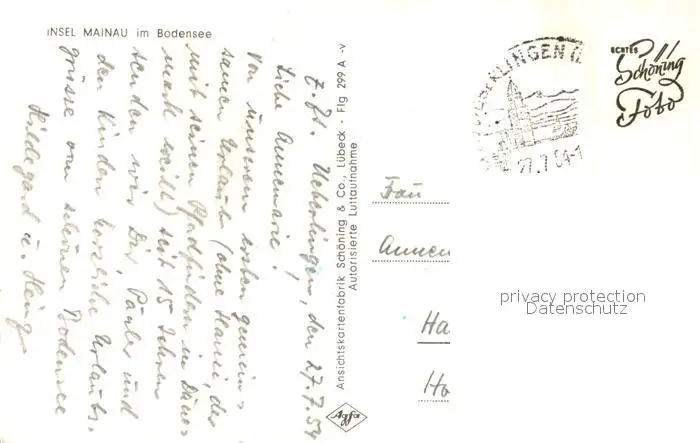 INSEL MAINAU im Bodensee
z. Zt. Ueberlingen, den 27.7.54
Liebe Annemarie!
Von unserem ersten gemein-
samen Urlaub (ohne Hansi, der
mit seinen Pfadfindern in Däne-
mark weilt) seit 15 Jahren
senden wir Dir, Paul und
den Kindern herzliche Urlaubs-
grüsse vom schönen Bodensee
Hildegard u. Heinz
Ansichtskartenfabrik Schöning & Co., Lübeck - Flg 299 A -v
Autorisierte Luftaufnahme
Agfa
ÜBERLINGEN
27.7.54-1
ECHTES
Schöning
Foto
Frau
Annem
Ha
Ho
privacy protection
Datenschutz